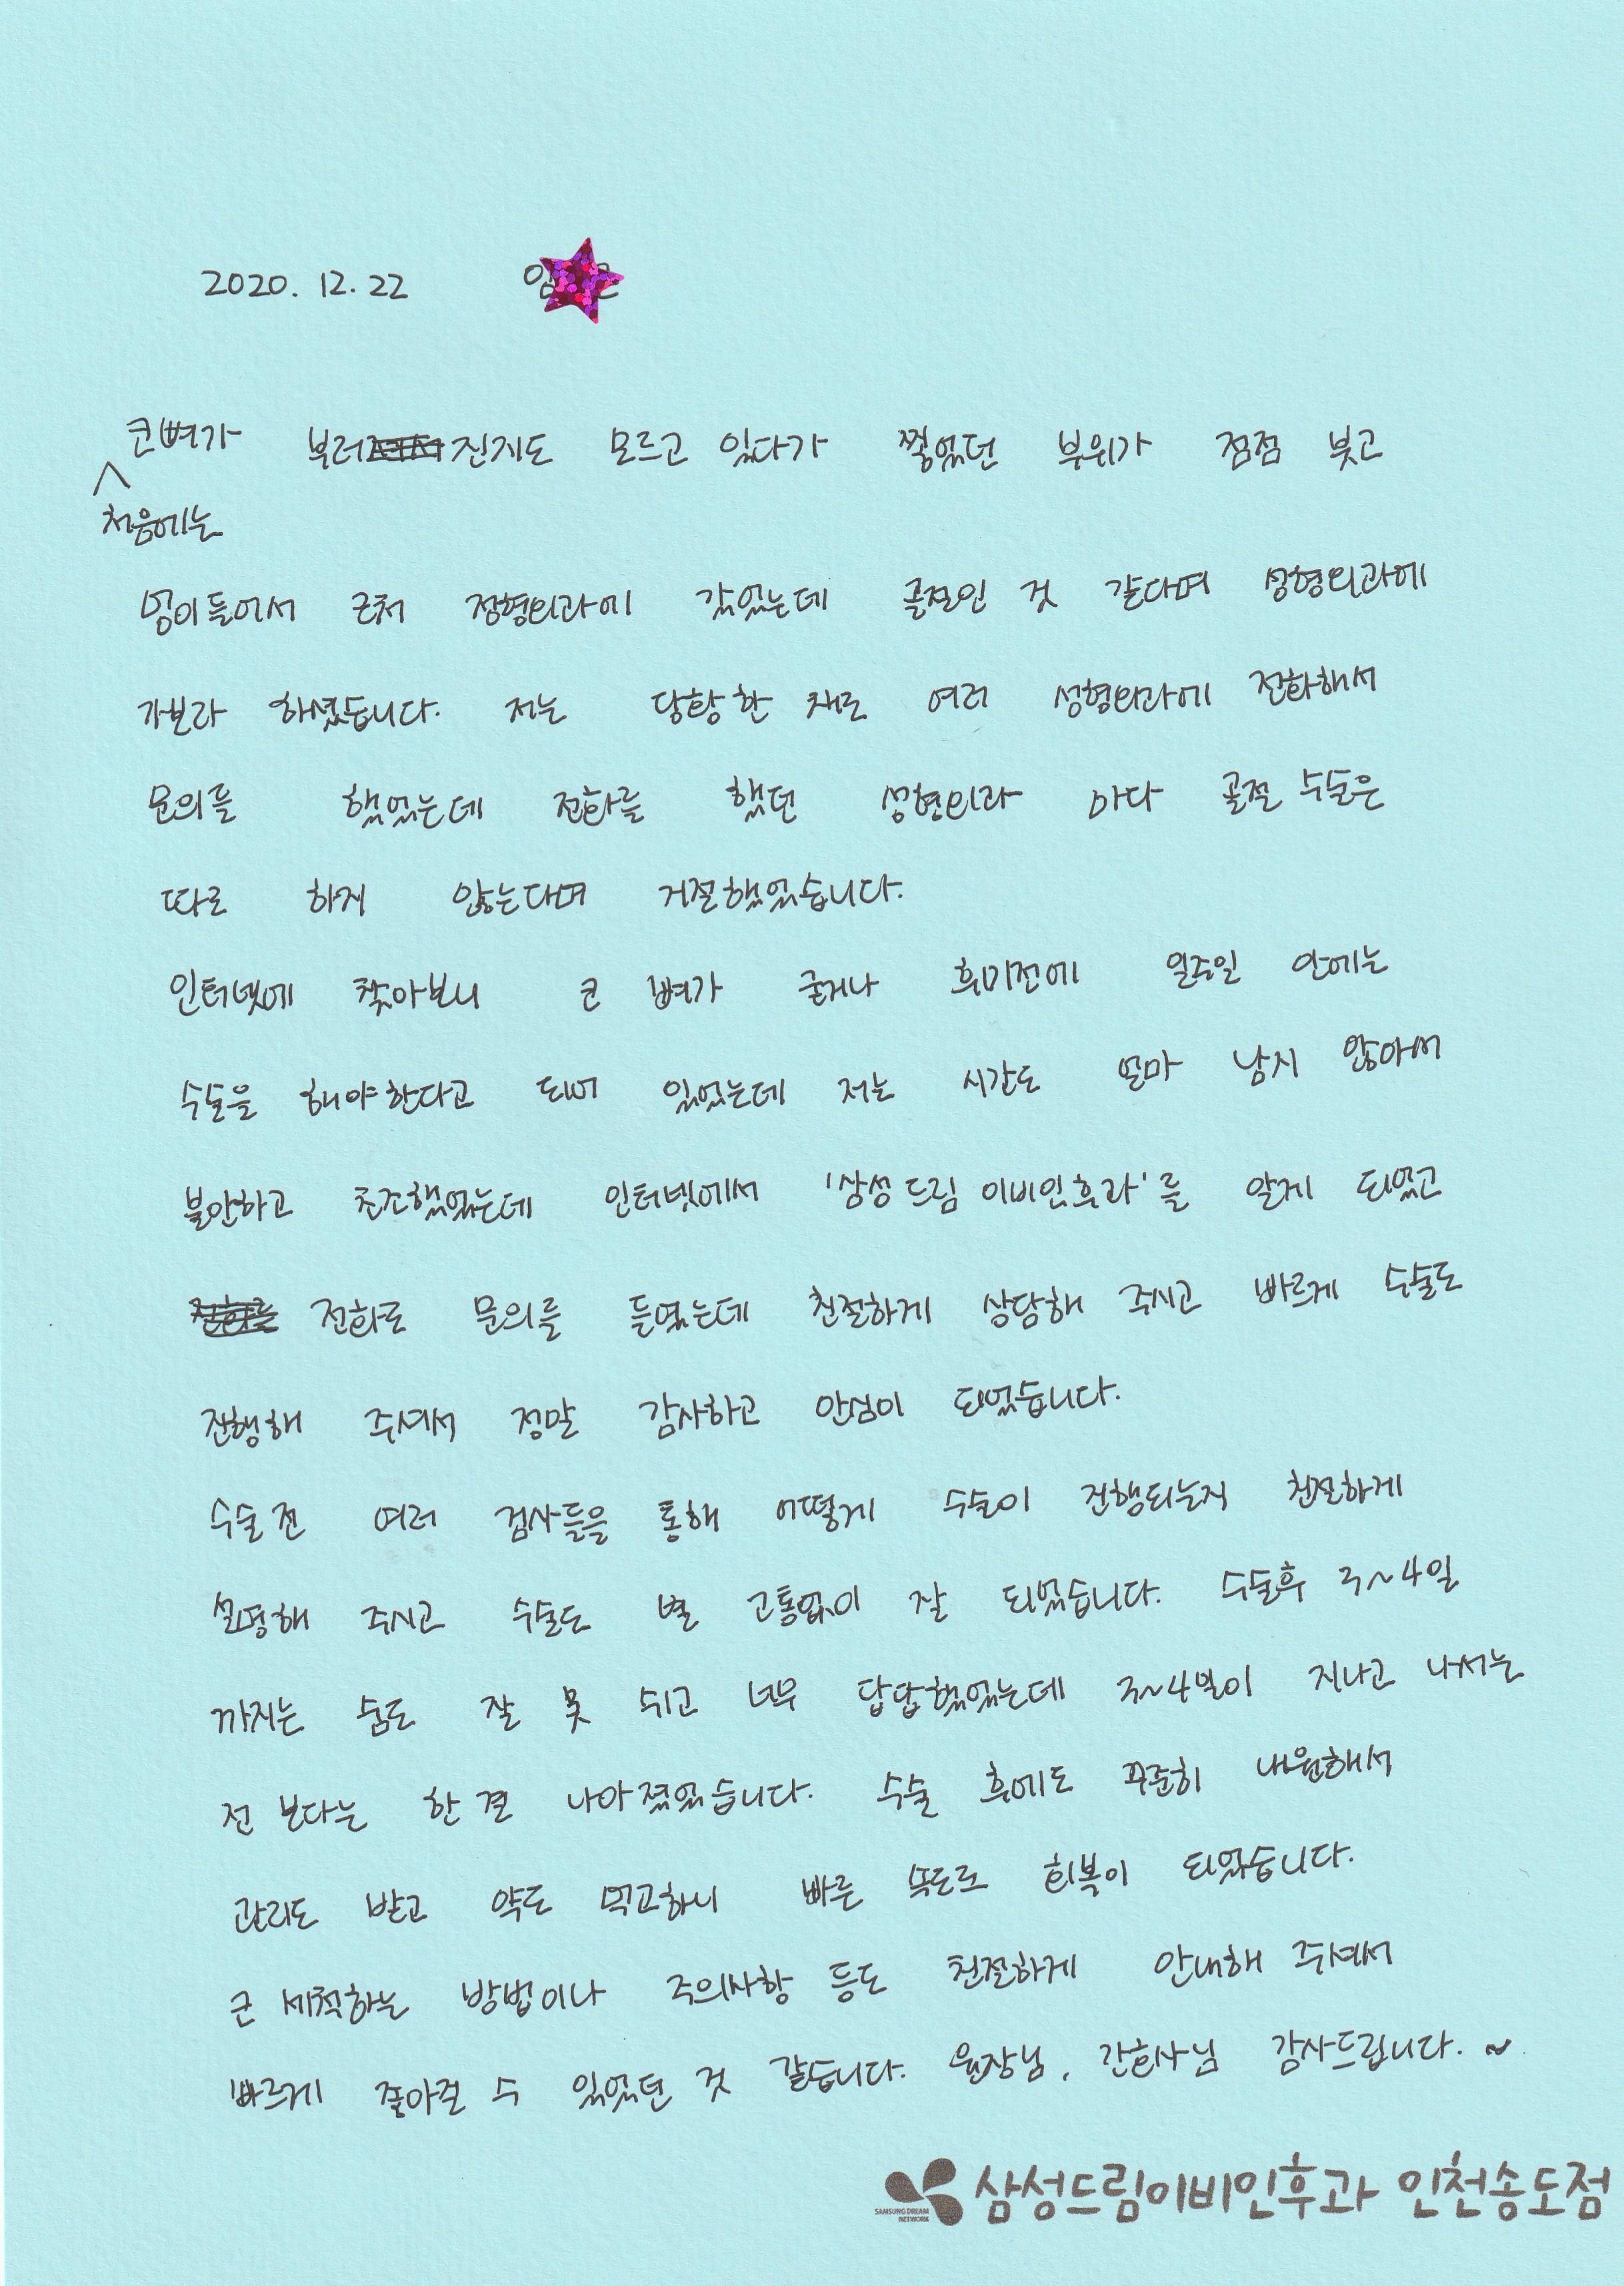 2020. 12. 22
코뼈가 부러진지도 모르고 있다가 찧었던 부위가 점점 붓고
처음에는
멍이들어서 근처 정형외과에 갔었는데 골절인 것 같다며 성형외과에
가보라 하셨습니다. 저는 당황한 채로 여러 성형외과에 전화해서
문의를 했었는데 전화를 했던 성형외과 마다 골절 수술은
따로 하지 않는다며 거절했었습니다.
인터넷에 찾아보니 코 뼈가 굳거나 휘기전에 일주일 안에는
수술을 해야한다고 되어 있었는데 저는 시간도 얼마 남지 않아서
불안하고 초조했었는데 인터넷에서 '삼성드림 이비인후과'를 알게 되었고
전화로 문의를 드렸는데 친절하게 상담해 주시고 빠르게 수술도
진행해 주셔서 정말 감사하고 안심이 되었습니다.
수술 전 여러 검사들을 통해 어떻게 수술이 진행되는지 친절하게
설명해 주시고 수술도 별 고통없이 잘 되었습니다. 수술후 3~4일
까지는 숨도 잘 못 쉬고 너무 답답했었는데 3~4일이 지나고 나서는
전 보다는 한결 나아졌었습니다. 수술 후에도 꾸준히 내원해서
관리도 받고 약도 먹고하니 빠른 속도로 회복이 되었습니다.
코 세척하는 방법이나 주의사항 등도 친절하게 안내해 주셔서
빠르게 좋아질 수 있었던 것 같습니다. 원장님, 간호사님 감사드립니다. ~
SAMSUNG DREAM NETWORK 삼성드림이비인후과 인천송도점